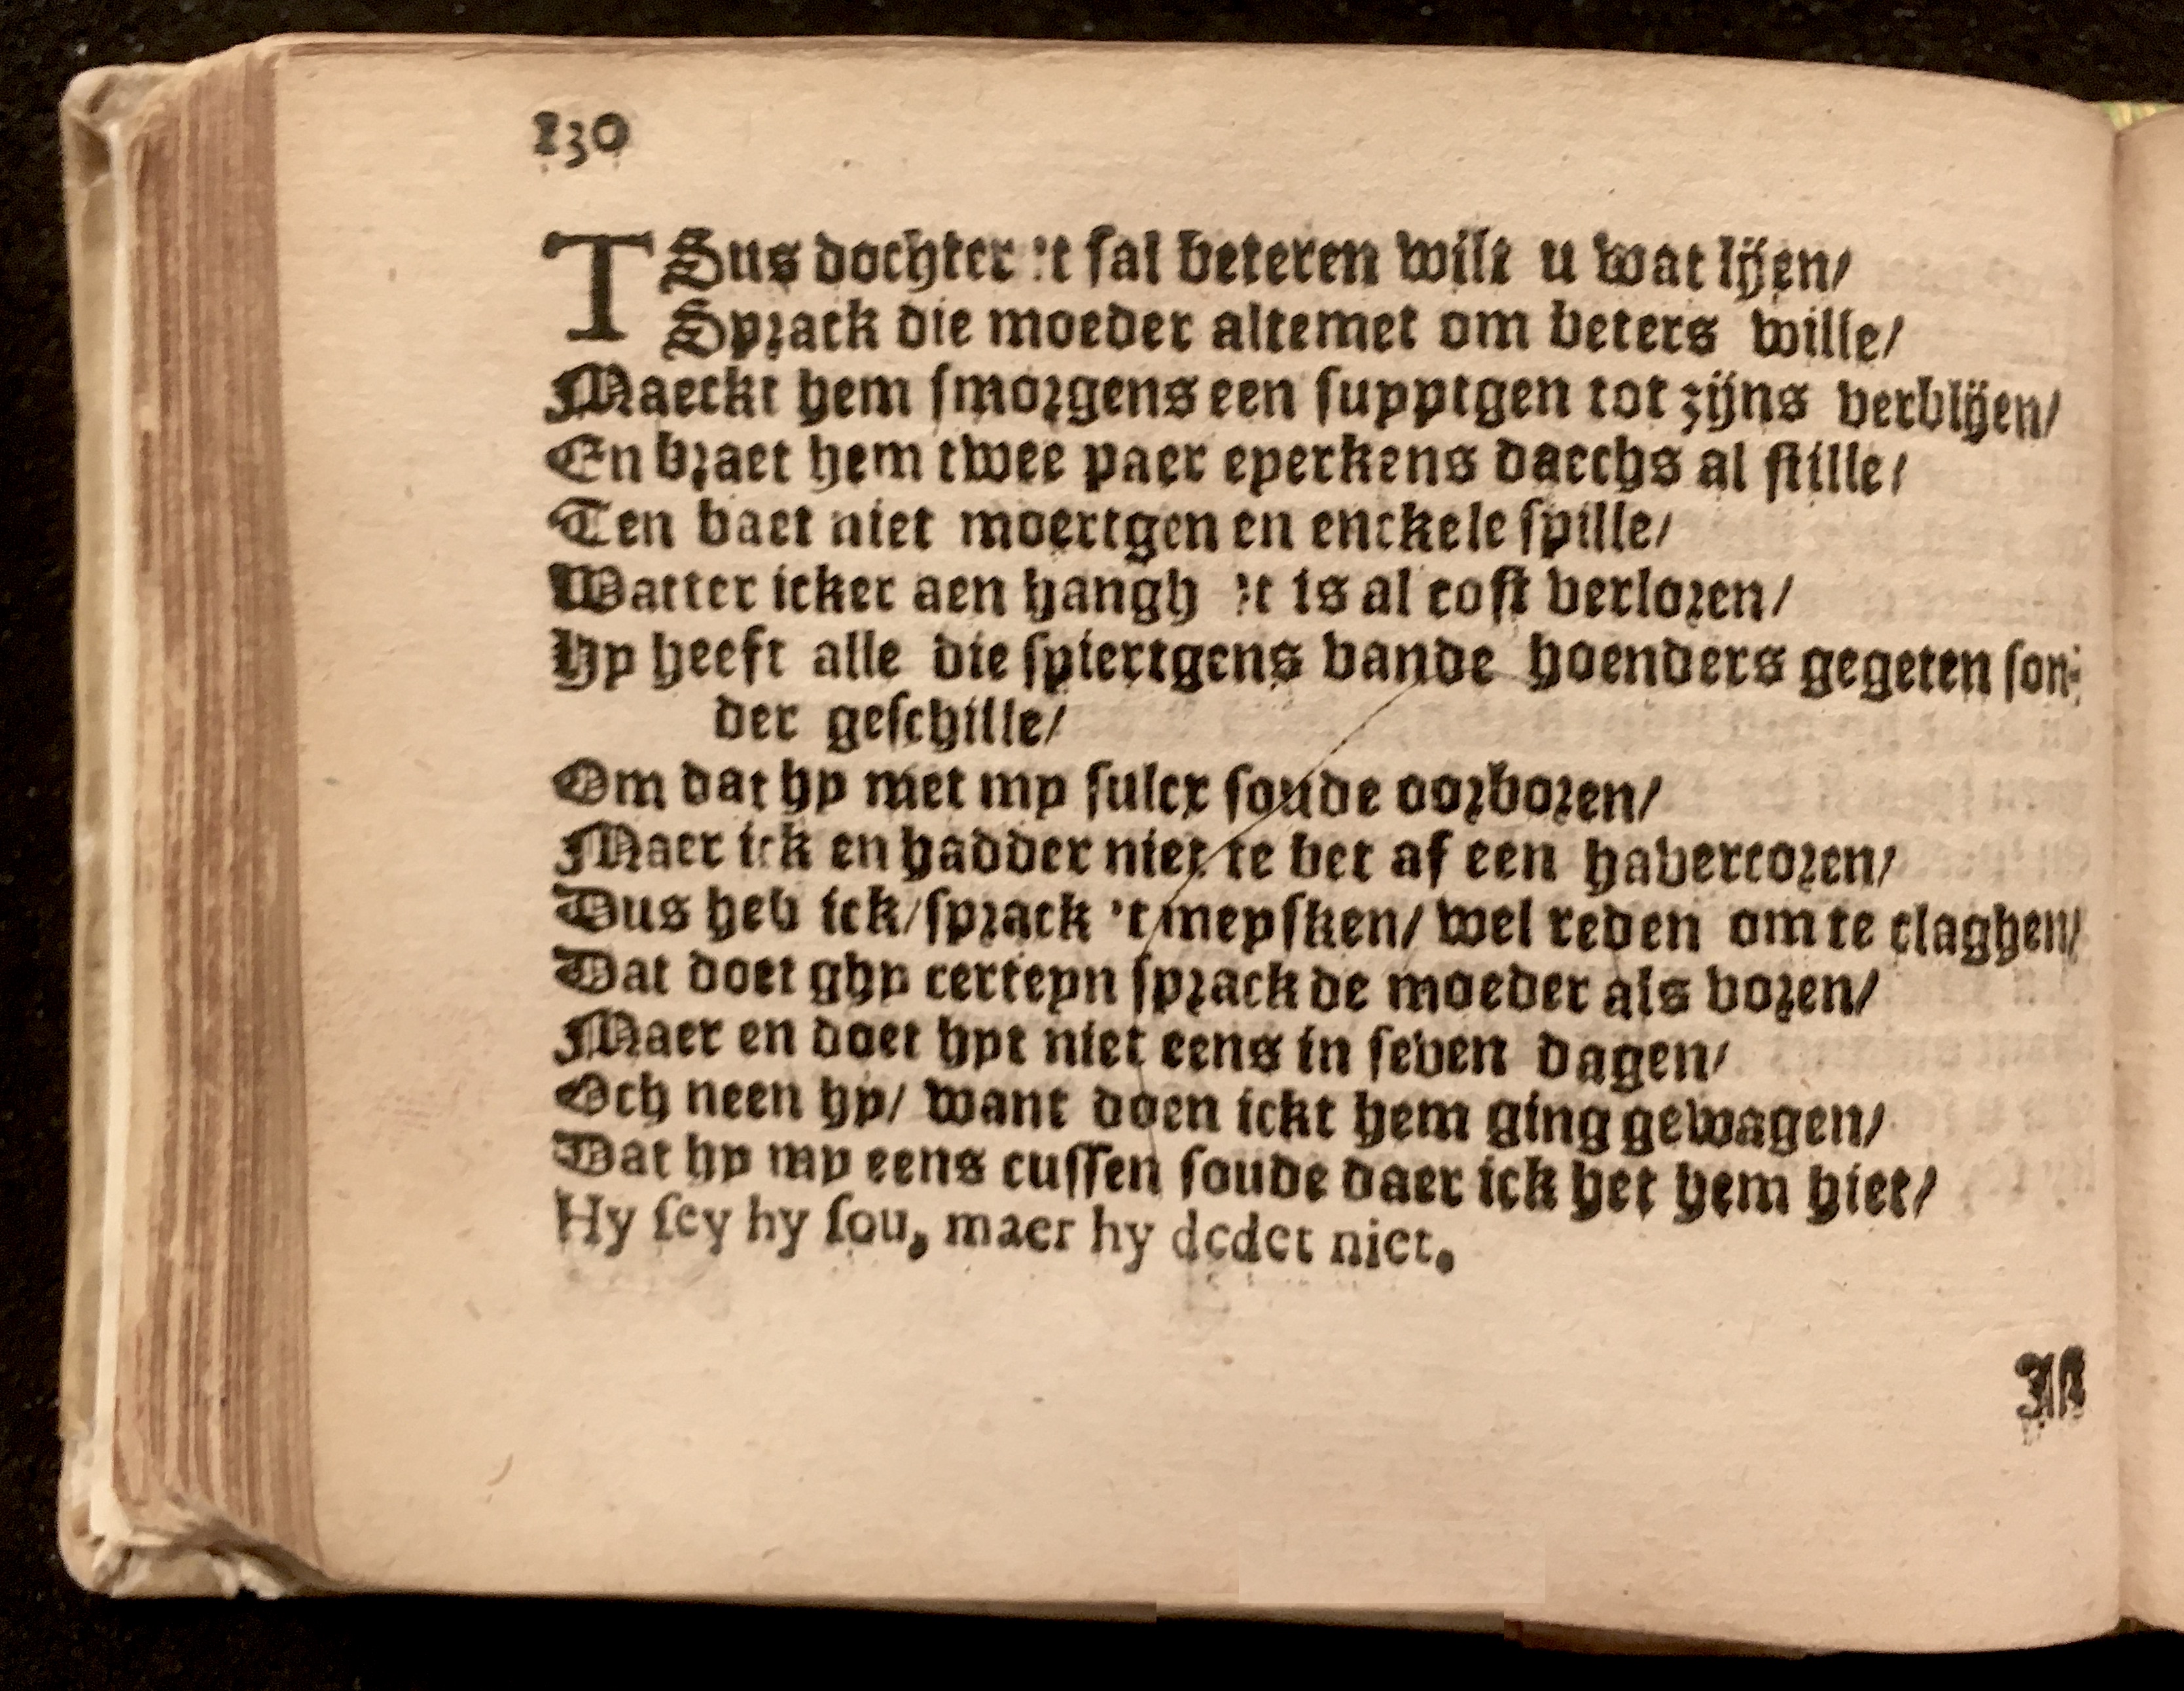 130
TSus dochter 't sal beteren wilt u wat lijen/
Sprack die moeder altemet om beters wille/
Maeckt hem smorgens een supptgen tot zijns verblijen/
En braet hem twee paer eyerkens daechs al stille/
Ten baet niet moertgen en enckele spille/
Watter icker aen hangh 't is al cost verloren/
Hy heeft alle die spiertgens vande hoenders gegeten son-
der geschille/
Om dat hy met my sulcx soude oorboren/
Maer ick en hadder niet te bet af een havercoren/
Dus heb ick/sprack 't meysken/ wel reden om te claghen/
Dat doet ghy certeyn sprack de moeder als voren/
Maer en doet hyt niet eens in seven dagen/
Och neen hy/ want doen ickt hem ging gewagen/
Dat hy my eens cussen soude daer ick het hem hiet/
Hy sey hy sou, maer hy dedet niet.
IN